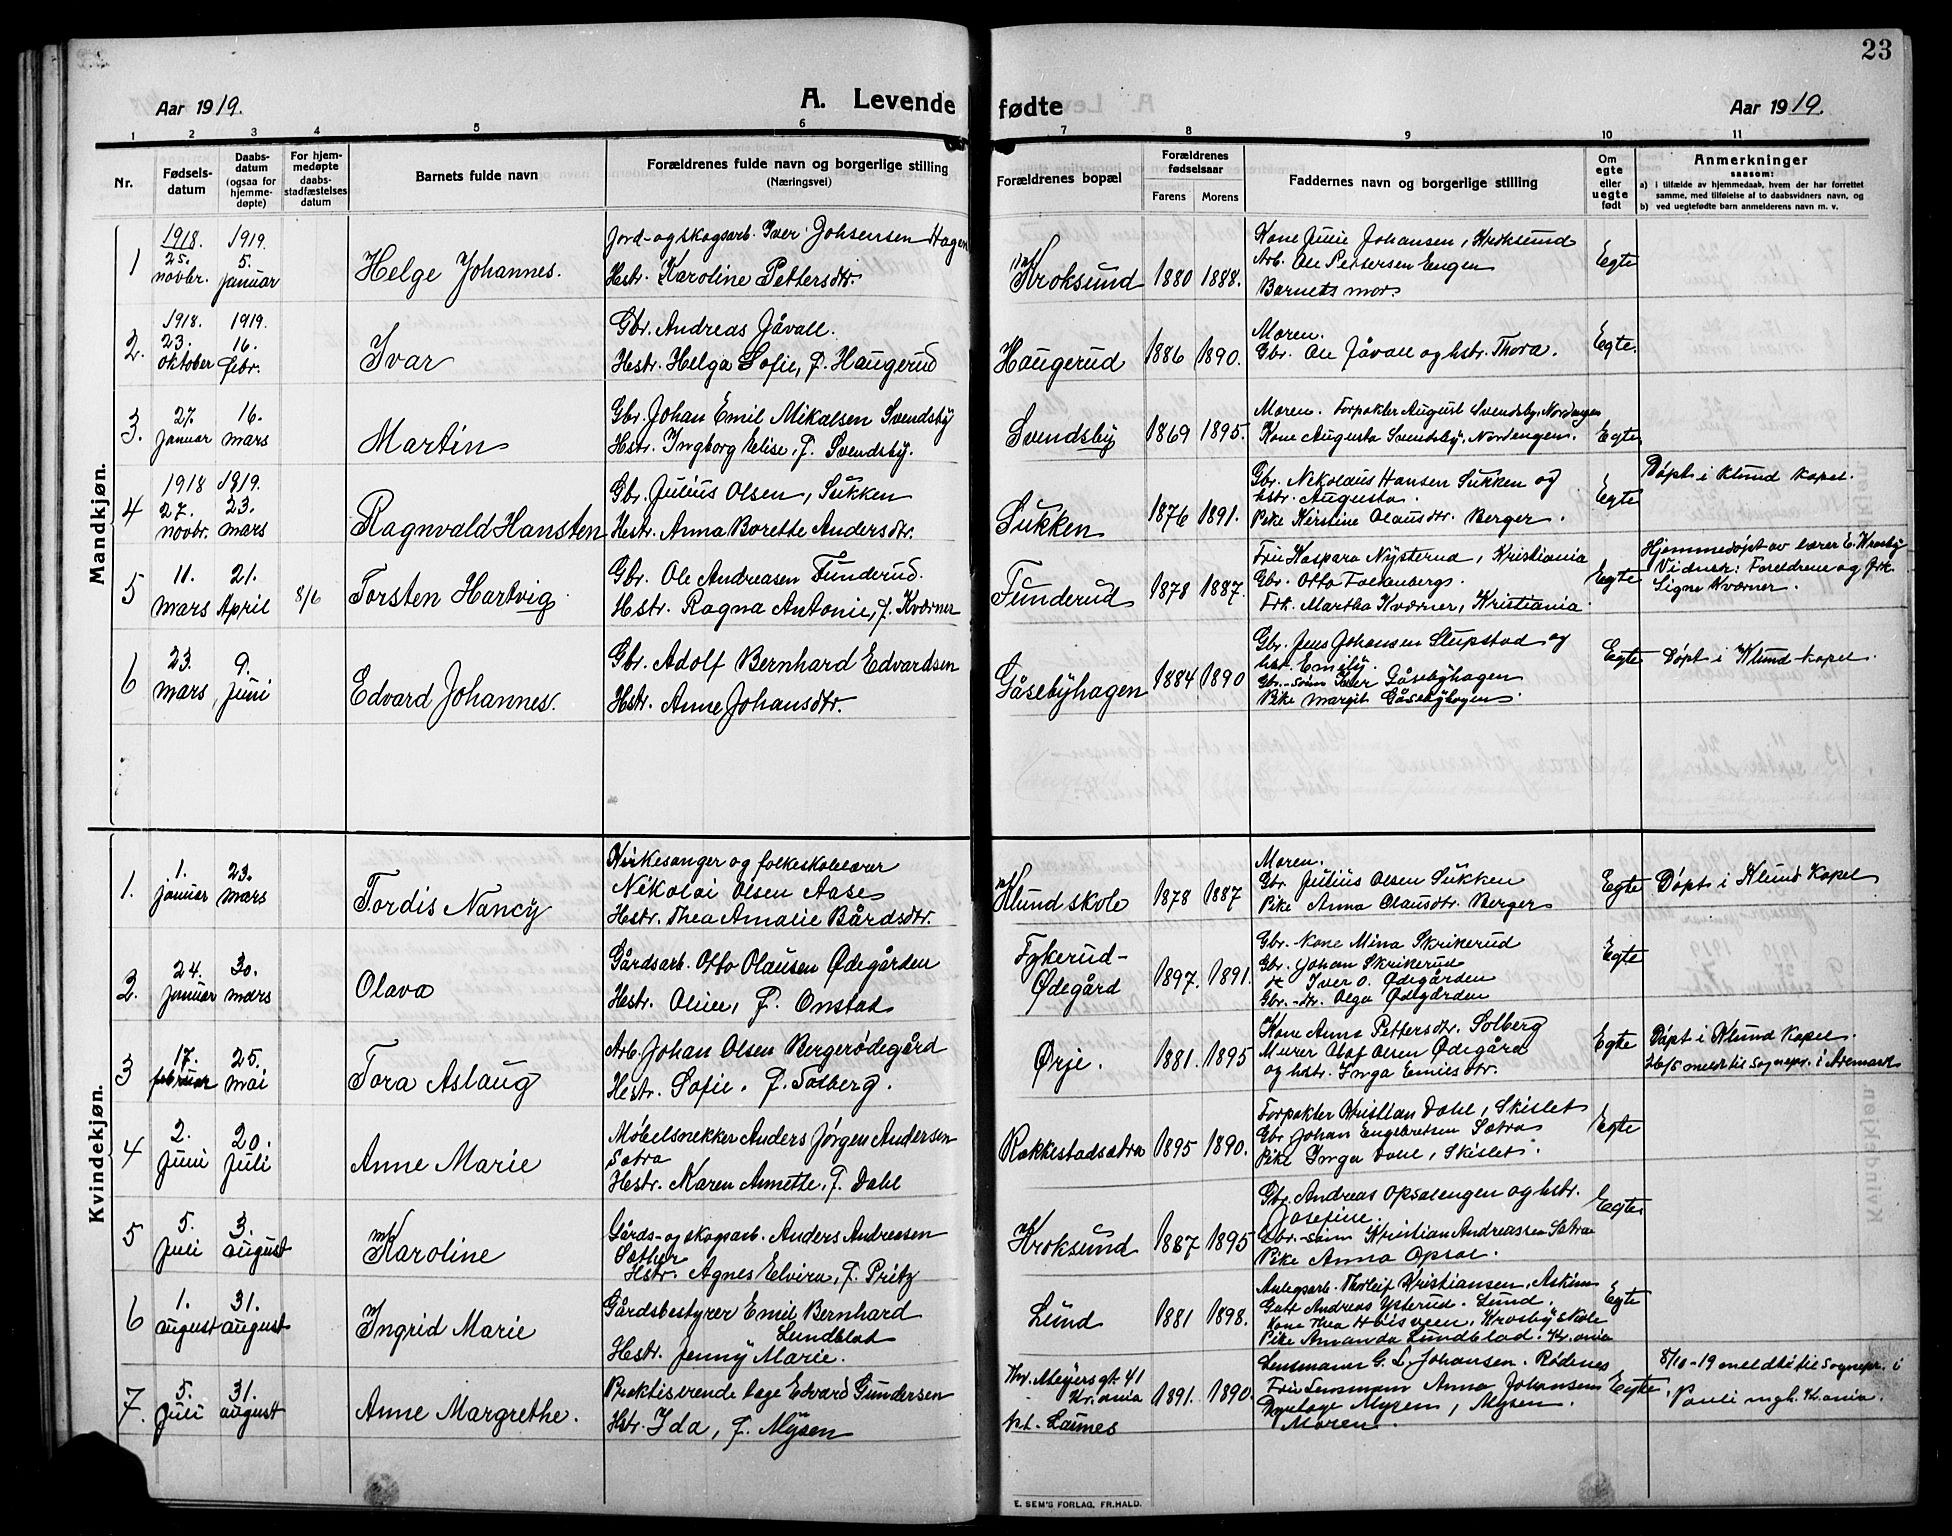 23
Aar 1919.
A. Levende
fødte
Aar 1919.
1 2 3 4 5 6 7 8 9 10 11
Nr.
Fødsels-
datum
Daabs-
datum
(ogsaa for
hjemme-
døpte)
For hjem-
medøpte
daabs-
stadfæstelses
datum
Barnets fulde navn
Forældrenes fulde navn og borgerlige stilling
(Næringsvei)
Forældrenes bopæl
Forældrenes
fødselsaar
Farens Morens
Faddernes navn og borgerlige stilling
Om
egte
eller
uegte
født
Anmerkninger
saasom:
a) i tilfælde av hjemmedaab, hvem der har forrettet
samme, med tilføielse af to daabsvidners navn, og
b) ved uegtefødte barn anmelderens navn m. v.
Mandkjøn.
1
1918.
25.
novbr.
1919.
5.
januar
Helge Johannes.
Jord- og skogsarb. Iver Johsensen Hagen
Hstr. Karoline Pettersdtr.
Kroksund
1880 1888.
Kone Julie Johansen, Kroksund
Arb. Ole Pettersen Engen
Barnets mor.
Egte
2.
1918.
23.
oktober
1919.
16.
febr.
Ivar
Gbr. Andreas Jåvall.
Hstr. Helga Sofie, f. Haugerud
Haugerud
1886 1890.
Moren.
Gbr. Ole Jåvall og hstr. Thora.
Egte.
3.
27.
januar
16.
mars
Martin
Gbr. Johan Emil Mikalsen Svendsby
Hstr. Ingborg Elise, f. Svendsby.
Svendsby
1869 1895.
Moren. Forpakter August Svendsby, Nordengen
Kone Augusta Svendsby, Nordengen.
Egte
4
1918
27.
novbr.
1919.
23.
mars
Ragnvald Hansten
Gbr. Julius Olsen, Sukken
Hstr. Anna Borette Andersdtr.
Sukken
1876 1891.
Gbr. Nikolaus Hansen Sukken og
hstr. Augusta.
Pike Kirstine Olausdtr. Berger.
Egte
Døpt i Klund kapel.
5
11.
mars
21.
April
8/6
Torsten Hartvig
Gbr. Ole Andreasen Funderud.
Hstr. Ragna Antonie, f. Kværner
Funderud
1878 1887.
Fru Kaspara Nysterud, Kristiania
Gbr. Otto Falkenberg.
Frk. Martha Kværner, Kristiania.
Egte
Hjemmedøpt av lærer E. Krosby
Vidner: Foreldrene og frk.
Signe Kværner.
6
23.
mars,
9.
juni
Edvard Johannes.
Gbr. Adolf Bernhard Edvardsen
Hstr. Anne Johansdtr.
Gåsebyhagen
1884 1890
Gbr. Jens Johansen Slupstad og
hstr. Emely.
Gbr.-sønn Iver Gåsebyhagen
Pike Margit Gåsebyhagen.
Egte
Døpt i Klund kapel.
Kvindekjøn.
1.
1.
januar
23.
mars
Tordis Nancy
Kirkesanger og folkeskolelærer
Nikolai Olsen Aase
Hstr. Thea Amalie Bårdsdtr.
Klund skole
1878 1887
Moren.
Gbr. Julius Olsen Sukken
Pike Anna Olausdtr. Berger
Egte
Døpt i Klund Kapel
2.
24.
januar
30.
mars
Olava
Gårdsarb. Otto Olausen Ødegården
Hstr. Oline, f. Onstad
Fykerud-
Ødegård
1897. 1891.
Gbr. Kone Mina Skrikerud
Gbr. Johan Skrikerud
Iver O. Ødegården
Gbr.-dtr. Olga Ødegården
Egte
3
17.
februar
25.
mai
Tora Aslaug
Arb. Johan Olsen Bergerødegård
Hstr. Sofie. f. Solberg.
Ørje.
1881. 1895
Kone Anna Pettersdtr. Solberg
Murer Olaf Olsen Ødegård
og hstr. Inga Emilsdtr.
Egte
Døpt i Klund kapel.
26/5 meldt til sognepr. i Aremark
4
2.
Juni
20.
Juli
Anne Marie
Møbelsnekker Anders Jørgen Andersen
Sætra
Hstr. Karen Annette, f. Dahl
Rakkestadsætra
1895 1890.
Forpakter Kristian Dahl, Skislet
Gbr. Johan Engebretsen Sætra
Pike Inga Dahl, Skislet.
Egte
5
5.
Juli
3.
august
Karoline
Gårds- og skogsarb. Anders Andreasen
Sæther
Hstr. Agnes Elvira, f. Pritz
Kroksund
1887 1895
Gbr. Andreas Opsalengen og hstr.
Josefine.
Gbr.-sønn Kristian Andreassen Sætra
Pike Anna Opsal.
Egte
6
1.
august
31.
august
Ingrid Marie
Gårdsbestyrer Emil Bernhard
Lundblad
Hstr. Jenny Marie.
Lund
1881 1898.
Anlegsarb. Thorleif Kristiansen, Askim
Gutt Andreas Ysterud. Lund.
Kone Thea Høisveen, Krosby Skole
Pike Amanda Lundblad. Kr.ania
Egte
7.
5.
Juli
31.
august
Anne Margrethe.
Praktiserende læge Edvard Gundersen
Hstr. Ida, f. Mysen
Thv. Meyersgt. 41
Kr.ania
1891. 1890.
Lensmann G. L. Johansen. Rødenes
Fru Lensmann Anna Johansen
Dyrlæge Mysen, Mysen.
Moren.
Egte
8/10-19 meldt til sognepr. i
Pauli mgh. Kr.ania.
E. SEM'S FORLAG, FR.HALD.